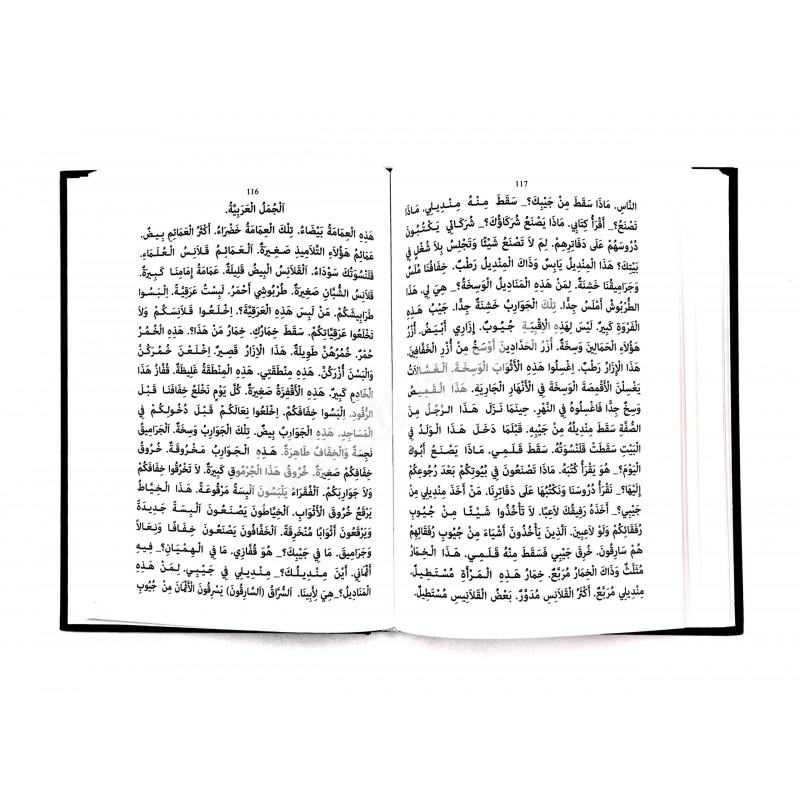 116
اَلْجُمَلُ الْعَرَبِيَّةُ.
هَذِهِ الْعِمَامَةُ بَيْضَاءُ. تِلْكَ الْعِمَامَةُ خَضْرَاءُ. أَكْثَرُ الْعَمَائِمِ بِيضٌ.
عَمَائِمُ هَؤُلَاءِ التَّلَامِيذِ صَغِيرَةٌ. اَلْعَمَائِمُ قَلَانِسُ الْعُلَمَاءِ.
قَلَنْسُوَتُكَ سَوْدَاءُ. اَلْقَلَانِسُ الْبِيضُ قَلِيلَةٌ. عِمَامَةُ إِمَامِنَا كَبِيرَةٌ.
قَلَانِسُ الشُّبَّانِ صَغِيرَةٌ. طَرْبُوشِي أَحْمَرُ. لَبِسْتُ عَرَقِيَّةً. اِلْبَسُوا
طَرَابِيشَكُمْ. مَنْ لَبِسَ هَذِهِ الْعَرَقِيَّةَ؟ اِخْلَعُوا قَلَانِسَكُمْ وَلَا
تَخْلَعُوا عَرَقِيَّاتِكُمْ. سَقَطَ خِمَارُكِ. خِمَارُ مَنْ هَذَا؟. هَذِهِ الْخُمُرُ
حُمْرٌ. خُمُرُهُنَّ طَوِيلَةٌ. هَذَا الْإِزَارُ قَصِيرٌ. اِخْلَعْنَ خُمُرَكُنَّ
وَالْبَسْنَ أُزُرَكُنَّ. هَذِهِ مِنْطَقَتِي. هَذِهِ الْمِنْطَقَةُ غَلِيظَةٌ. قُفَّازُ هَذَا
الْخَادِمِ كَبِيرٌ. هَذِهِ الْأَقْفِزَةُ صَغِيرَةٌ. كُلَّ يَوْمٍ نَخْلَعُ خِفَافَنَا قَبْلَ
الرُّقُودِ. اِلْبَسُوا خِفَافَكُمْ. اِخْلَعُوا نِعَالَكُمْ قَبْلَ دُخُولِكُمْ فِي
الْمَسَاجِدِ. هَذِهِ الْجَوَارِبُ بِيضٌ. تِلْكَ الْجَوَارِبُ وَسِخَةٌ. اَلْجَرَامِيقُ
نَجِسَةٌ وَالْخِفَافُ طَاهِرَةٌ. هَذِهِ الْجَوَارِبُ مَخْرُوقَةٌ. خُرُوقُ
خِفَافِكُمْ صَغِيرَةٌ. خُرُوقُ هَذَا الْجُرْمُوقِ كَبِيرَةٌ. لَا تَخْرِقُوا خِفَافَكُمْ
وَلَا جَوَارِبَكُمْ. اَلْفُقَرَاءُ يَلْبَسُونَ أَلْبِسَةً مَرْقُوعَةً. هَذَا الْخَيَّاطُ
يَرْقَعُ خُرُوقَ الْأَثْوَابِ. اَلْخَيَّاطُونَ يَصْنَعُونَ أَلْبِسَةً جَدِيدَةً
وَيَرْقَعُونَ أَثْوَابًا مُنْخَرِقَةً. اَلْخَفَّافُونَ يَصْنَعُونَ خِفَافًا وَنِعَالًا
وَجَرَامِيقَ. مَا فِي جَيْبِكَ؟_ هُوَ قُفَّازِي. مَا فِي الْهِمْيَانِ؟_ فِيهِ
أَثْمَانِي. أَيْنَ مِنْدِيلُكَ؟_ مِنْدِيلِي فِي جَيْبِي. لِمَنْ هَذِهِ
الْمَنَادِيلُ؟_هِيَ لِأَبِينَا. اَلسُّرَّاقُ (اَلسَّارِقُونَ) يَسْرِقُونَ الْأَثْمَانَ مِنْ جُيُوبِ
117
النَّاسِ. مَاذَا سَقَطَ مِنْ جَيْبِكَ؟_ سَقَطَ مِنْهُ مِنْدِيلِي. مَاذَا
تَصْنَعُ؟_ أَقْرَأُ كِتَابِي. مَاذَا يَصْنَعُ شُرَكَاؤُكَ؟_ شُرَكَائِي يَكْتُبُونَ
دُرُوسَهُمْ عَلَى دَفَاتِرِهِمْ. لِمَ لَا تَصْنَعُ شَيْئًا وَتَجْلِسُ بِلَا شُغْلٍ فِي
بَيْتِكَ؟ هَذَا الْمِنْدِيلُ يَابِسٌ وَذَاكَ الْمِنْدِيلُ رَطْبٌ. خِفَافُنَا مُلْسٌ
وَجَرَامِيقُنَا خَشِنَةٌ. لِمَنْ هَذِهِ الْمَنَادِيلُ الْوَسِخَةُ؟_ هِيَ لِي. هَذَا
الطَّرْبُوشُ أَمْلَسُ جِدًّا. تِلْكَ الْجَوَارِبُ خَشِنَةٌ جِدًّا. جَيْبُ هَذِهِ
الْفَرْوَةِ كَبِيرٌ. لَيْسَ لِهَذِهِ الْأَقْبِيَةِ جُيُوبٌ. إِزَارِي أَبْيَضُ. أُزُرُ
هَؤُلَاءِ الْحَمَّالِينَ وَسِخَةٌ. أُزُرُ الْحَدَّادِينَ أَوْسَخُ مِنْ أُزُرِ الْخَفَّافِينَ.
هَذَا الْإِزَارُ رَطْبٌ. اِغْسِلُوا هَذِهِ الْأَثْوَابَ الْوَسِخَةَ. اَلْغَسَّالَاتُ
يَغْسِلْنَ الْأَقْمِصَةَ الْوَسِخَةَ فِي الْأَنْهَارِ الْجَارِيَةِ. هَذَا الْقَمِيصُ
وَسِخٌ جِدًّا فَاغْسِلُوهُ فِي النَّهْرِ. حِينَمَا نَزَلَ هَذَا الرَّجُلُ مِنَ
الصُّفَّةِ سَقَطَ مِنْدِيلُهُ مِنْ جَيْبِهِ. قَبْلَمَا دَخَلَ هَذَا الْوَلَدُ فِي
الْبَيْتِ سَقَطَتْ قَلَنْسُوَتُهُ. سَقَطَ قَلَمِي. مَاذَا يَصْنَعُ أَبُوكَ
الْيَوْمَ؟_ هُوَ يَقْرَأُ كُتُبَهُ. مَاذَا تَصْنَعُونَ فِي بُيُوتِكُمْ بَعْدَ رُجُوعِكُمْ
إِلَيْهَا؟_ نَقْرَأُ دُرُوسَنَا وَنَكْتُبُهَا عَلَى دَفَاتِرِنَا. مَنْ أَخَذَ مِنْدِيلِي مِنْ
جَيْبِي؟_ أَخَذَهُ رَفِيقُكَ لَاعِبًا. لَا تَأْخُذُوا شَيْئًا مِنْ جُيُوبِ
رُفَقَائِكُمْ وَلَوْ لَاعِبِينَ. اَلَّذِينَ يَأْخُذُونَ أَشْيَاءَ مِنْ جُيُوبِ رُفَقَائِهِمْ
هُمْ سَارِقُونَ. خُرِقَ جَيْبِي فَسَقَطَ مِنْهُ قَلَمِي. هَذَا الْخِمَارُ
مُثَلَّثٌ وَذَاكَ الْخِمَارُ مُرَبَّعٌ. خِمَارُ هَذِهِ الْمَرْأَةِ مُسْتَطِيلٌ.
مِنْدِيلِي مُرَبَّعٌ. أَكْثَرُ الْقَلَانِسِ مُدَوَّرٌ. بَعْضُ الْقَلَانِيسِ مُسْتَطِيلٌ.